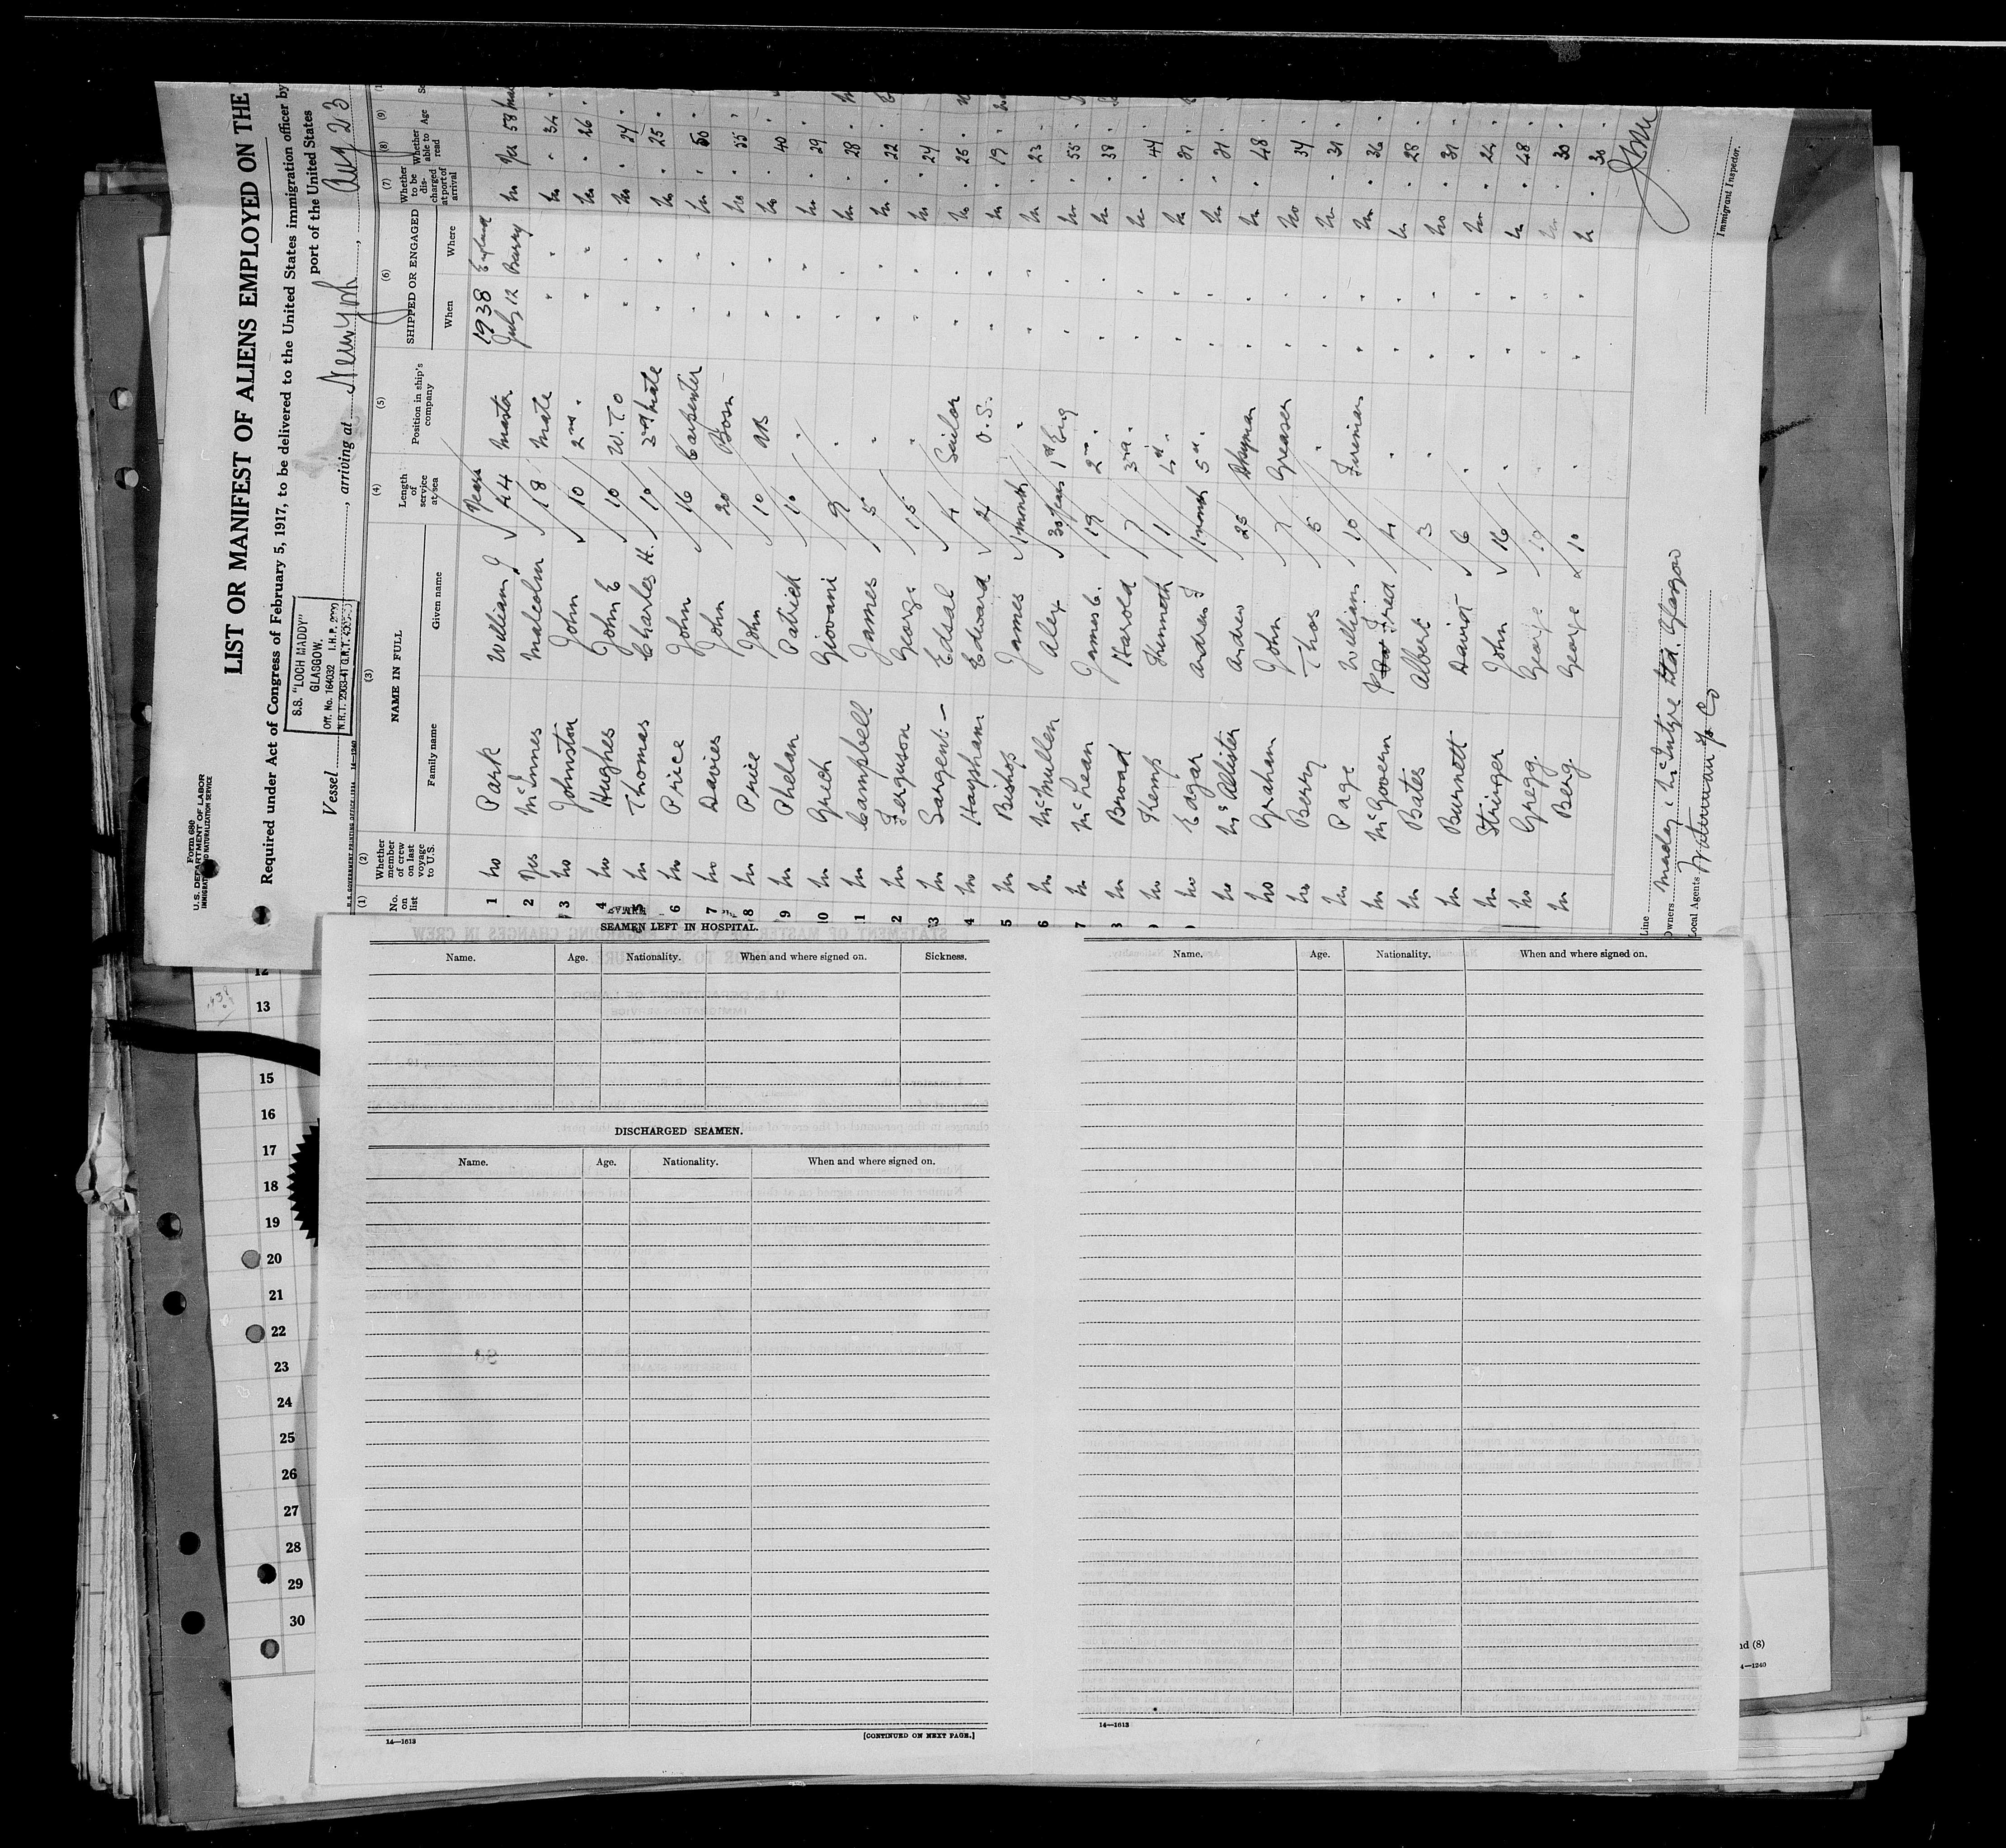 Form 680
U. S. DEPARTMENT OF LABOR
IMMIGRATION AND NATURALIZATION SERVICE
LIST OR MANIFEST OF ALIENS EMPLOYED ON THE
Required under Act of Congress of February 5, 1917, to be delivered to the United States immigration officer by
port of the United States
S.S. "LOCH MADDY"
GLASGOW.
Off. No. 164032 I.H.P.
N.R.T. 2963·41 G.R.T.
Vessel , arriving at New York , Aug 23
U.S. GOVERNMENT PRINTING OFFICE 14—1240
(1) (2) (3) (4) (5) (6) (7) (8) (9)
No. on list Whether member of crew on last voyage to U.S. NAME IN FULL Length of service at sea Position in ship's company SHIPPED OR ENGAGED Whether to be discharged at port of arrival Whether able to read Age
Family name Given name When Where
Years 1938 England
1 No Park William J 44 Master July 12 Barry No Yes 58
2 Yes McInnes Malcolm 18 Mate " " No " 34
3 No Johnston John 10 2nd " " " No " 26
4 No Hughes John E 10 W.T.O " " No " 24
5 No Thomas Charles H. 10 3rd Mate " " No " 25
6 No Price John 16 Carpenter " " No " 50
7 No Davies John 20 Bosn " " No " 55
8 No Price John 10 AB " " No " 40
9 No Phelan Patrick 10 " " " No " 29
10 No Grech Giovani 9 " " " No " 28
11 No Campbell James 5 " " " No " 22
12 No Ferguson George 15 " " " No " 24
13 No Sargent Edsal 4 Sailor " " No " 25
14 No Haysham Edward 2 O.S. " " No " 19
15 No Bishop James 1 month " " " No " 23
16 No McMullen Alex 30 years 1st Eng " " No " 55
17 No McLean James C. 19 2nd " " " No " 38
18 No Broad Harold 7 3rd " " " No " 44
No Kemp Kenneth 1 4th " " " No " 31
No Eagar Andrew J 1 month 5th " " " No " 21
No McAllister Andrew 25 Dkyman " " No " 48
No Graham John 7 Greaser " " No " 34
No Berry Thos 5 " " " No " 31
No Page William 10 Fireman " " No " 36
No McGovern Fred 4 " " " No " 28
No Bates Albert 3 " " " No " 31
No Burnett David 6 " " " No " 24
No Stringer John 16 " " " No " 48
No Gregg George 19 " " " No " 30
No Berg George 10 " " " No " 30
Line
Owners Maclay & McIntyre Ltd. Glasgow
Local Agents
Immigrant Inspector.
SEAMEN LEFT IN HOSPITAL.
Name. Age. Nationality. When and where signed on. Sickness.
DISCHARGED SEAMEN.
Name. Age. Nationality. When and where signed on.
14—1613 [CONTINUED ON NEXT PAGE.]
Name. Age. Nationality. When and where signed on.
14—1613
12
13
15
16
17
18
19
20
21
22
23
24
25
26
27
28
29
30
nd (8)
4—1240